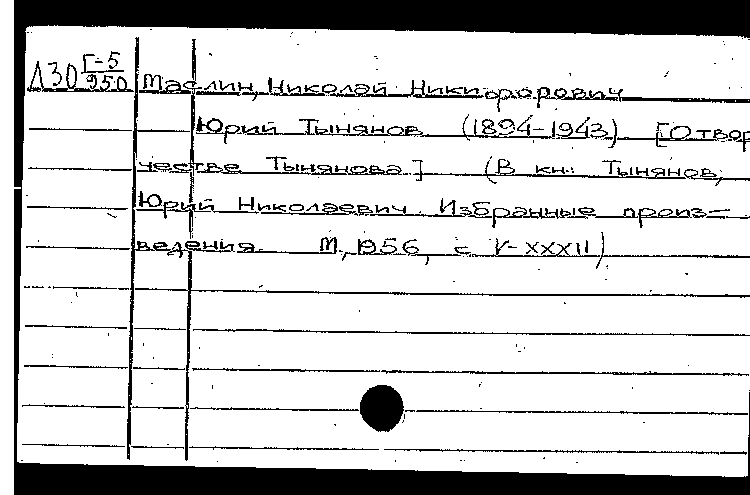 Л30 Г-5/950 Маслин, Николай Никифорович
Юрий Тынянов. (1894-1943). [О твор
честве Тынянова.] (В кн.: Тынянов,
Юрий Николаевич. Избранные произ-
ведения. М., 1956, с. V-XXXII)